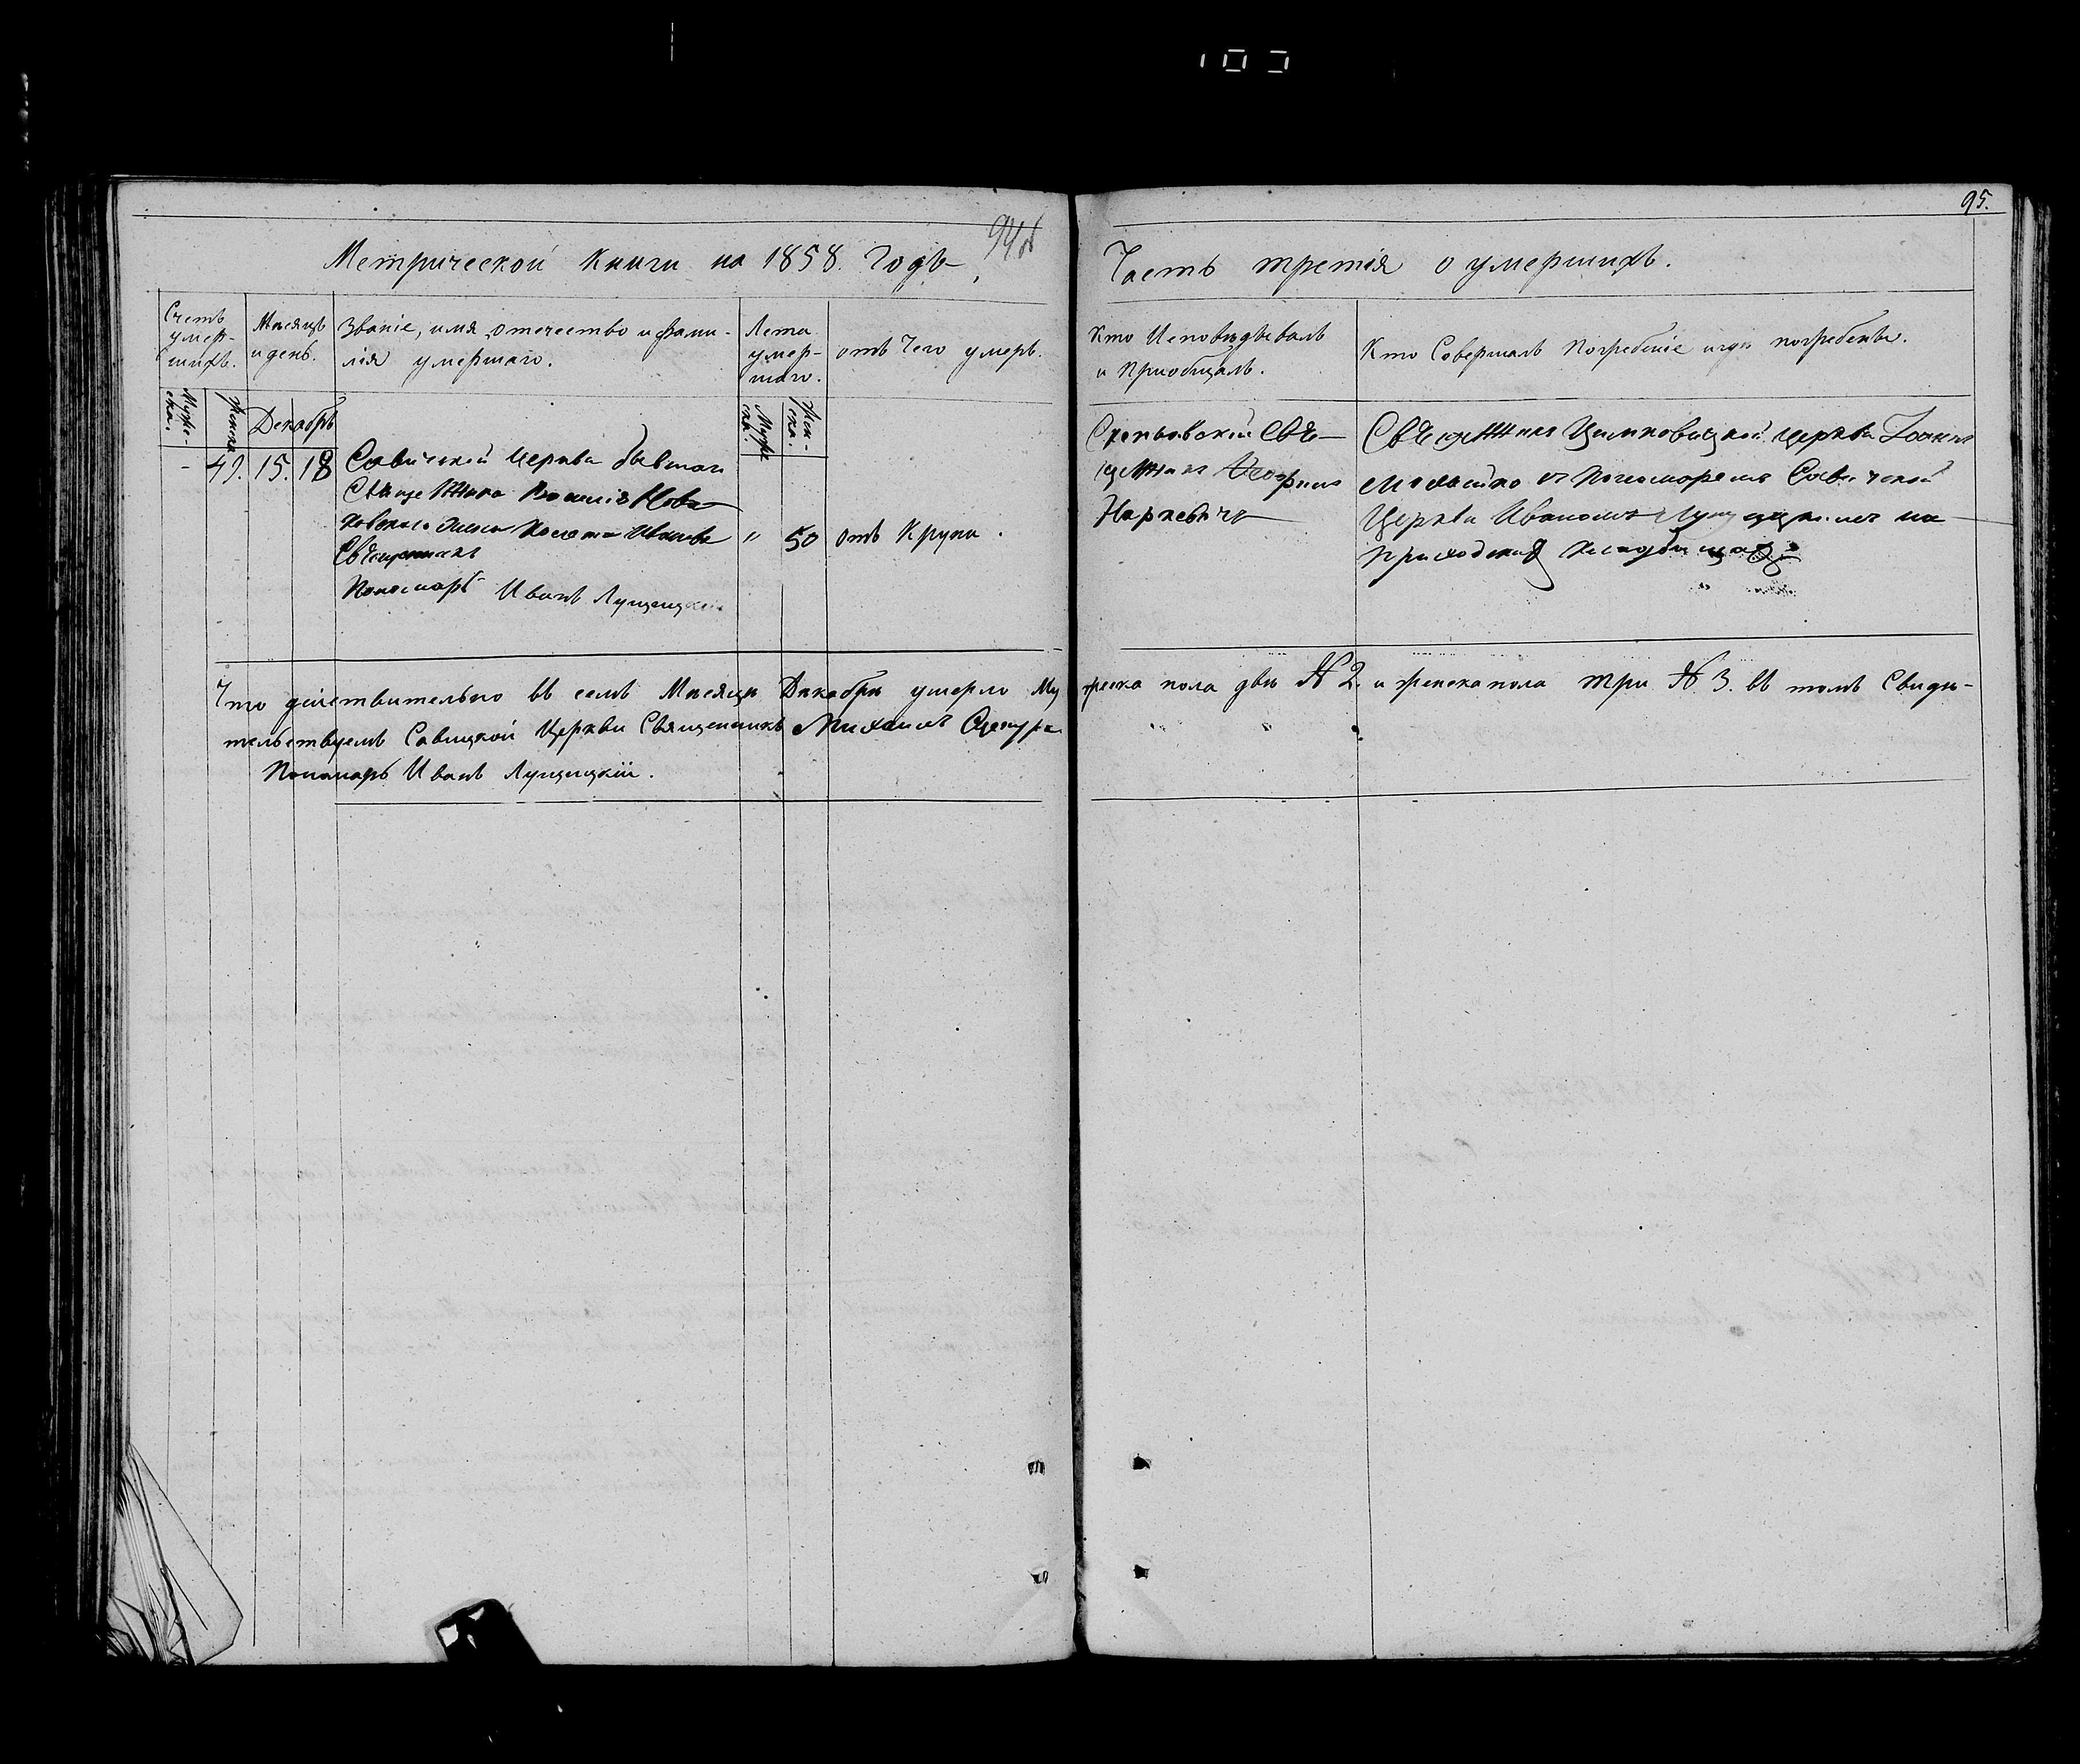 103
95.
94об
Метрической Книги на 1858. Годъ
Часть третія о умершихъ.
Счетъ
умер-
шихъ.
Мѣсяцъ
и день.
Званіе, имя, отечество и фами-
лія умершаго.
Лета
умер-
шаго.
отъ Чего умеръ.
Кто Исповѣдывалъ
и Приобщалъ.
Кто Совершалъ Погребеніе и гдѣ погребены.
Муже-
ска.
Женска
Декабрь
Муже
ска
Жен-
ска.
- 49. 15. 18
Савичской Церкви бывшаго
Священника Василія
жена Иванова
Священникъ
Пономарь Иванъ Лущицкій
" 50
отъ Крупи.
Свя-
щенникъ
Наркевичъ
Священникъ Цимковицкой церкви Іоаннъ
съ Пономаремъ Савичской
Церкви Иваномъ Лущицкимъ на
приходскомъ кладбищѣ
Что дѣйствительно въ семъ Мѣсяцѣ Декабрѣ умерло Му
жеска пола двѣ № 2. и женска пола три № 3. въ томъ Свидѣ-
тельствуемъ Савицкой Церкви Священникъ Михаилъ
Пономарь Иванъ Лущицкій.